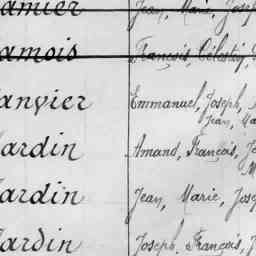 Jean, Marie, Joseph
amois François, Célestin,
anvier Emmanuel, Joseph,
Jean, Ma
ardin Amand, François, Jo
M
ardin Jean, Marie, Jose
ardin Joseph, François, J